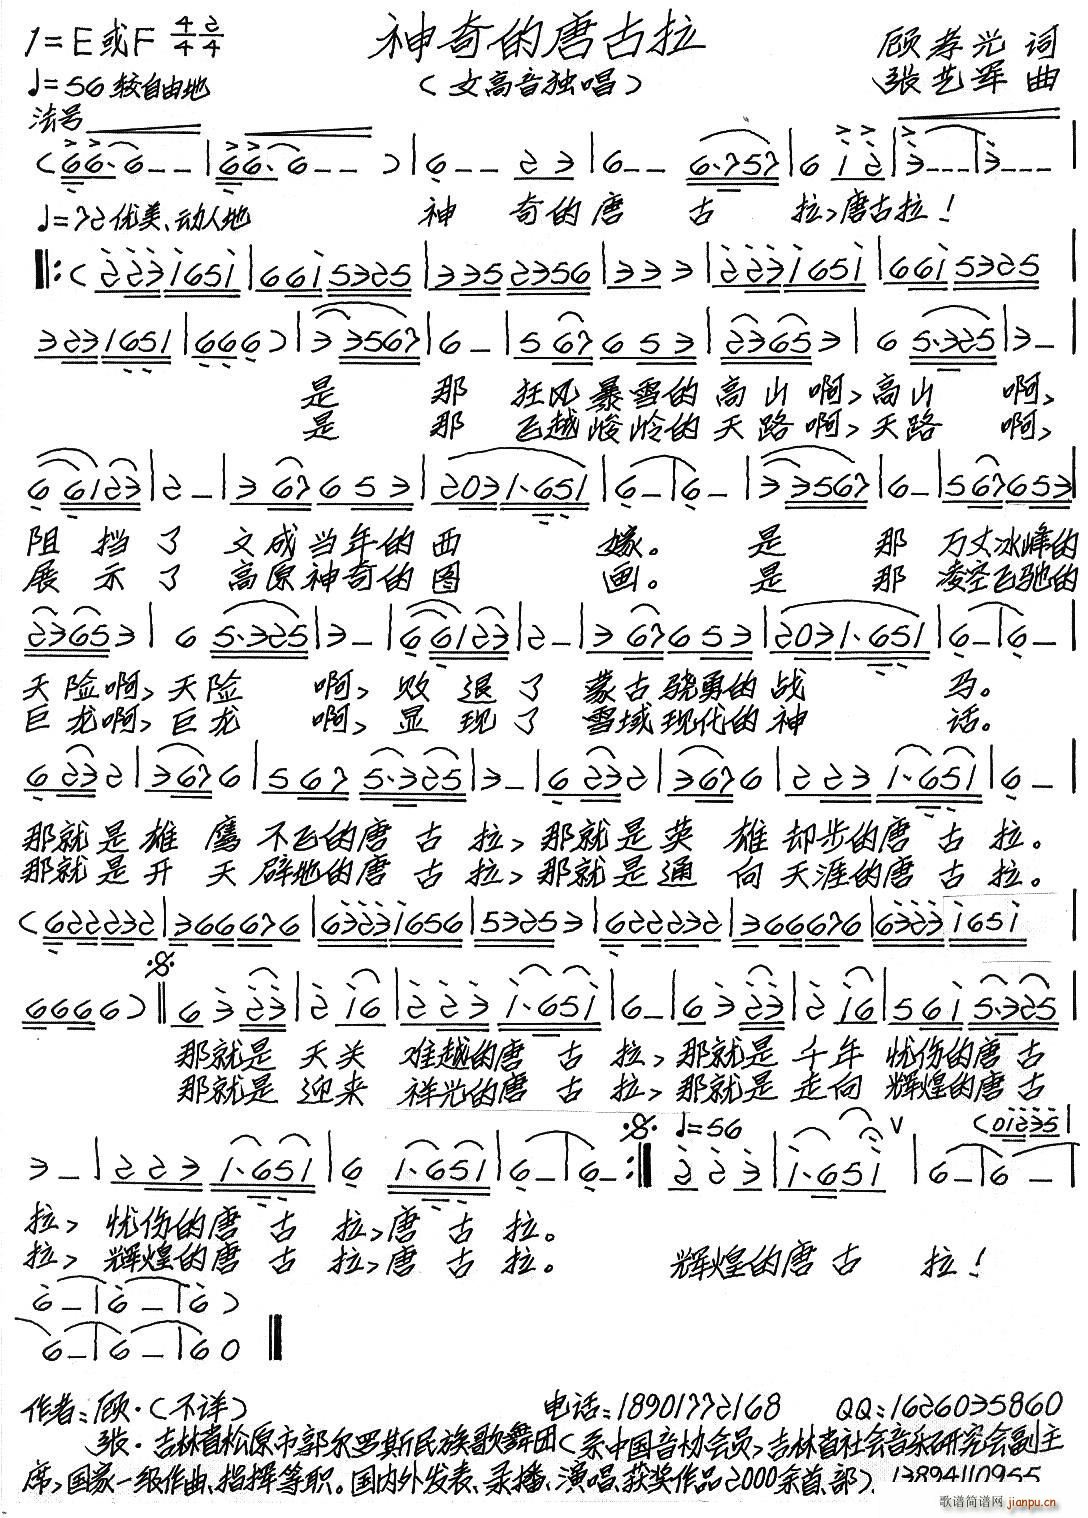 1=E或F 4/4 2/4
神奇的唐古拉
顾孝光 词
♩=56 较自由地
（女高音独唱）
张艺军 曲
法号
(6 6·6 - - | 6 6·6 - - ) | 6 - - 2 3 | 6 - - 6·757 | 6 1 2 | 3 - - - | 3 - - - |
♩=72 优美、动人地
神 奇的唐 古 拉,唐古拉！
‖:( 2231651 | 6615325 | 3352356 | 3 3 3 | 2231651 | 6615325 |
3231651 | 6 6 6 ) | 3 3567 | 6 - | 5 67 6 5 3 | 2365 3 | 6 5·325 | 3 - |
是 那 狂风暴雪的高山啊,高山 啊,
是 那 飞越峻岭的天路啊,天路 啊,
6 6123 | 2 - | 3 67 6 5 3 | 2031·651 | 6 - | 6 - | 3 3567 | 6 - | 567653 |
阻挡了 文成当年的西 嫁。 是 那 万丈冰峰的
展示了 高原神奇的图 画。 是 那 凌空飞驰的
2365 3 | 6 5·325 | 3 - | 6 6123 | 2 - | 3 67 6 5 3 | 2031·651 | 6 - | 6 - |
天险啊,天险 啊,败退了 蒙古骁勇的战 马。
巨龙啊,巨龙 啊,显现了 雪域现代的神 话。
6 23 2 | 367 6 | 5 6 7 5·325 | 3 - | 6 23 2 | 367 6 | 2 2 3 1·651 | 6 - |
那就是雄鹰不飞的唐古拉,那就是英雄却步的唐古拉。
那就是开天辟地的唐古拉,那就是通向天涯的唐古拉。
( 622232 | 366676 | 63231656 | 53253 | 622232 | 366676 | 6323 1651 |
6666 ) ‖ 6 3 23 | 2 16 | 2 2 3 1·651 | 6 - | 6 3 23 | 2 16 | 5 6 1 5·325 |
那就是天关难越的唐古拉,那就是千年忧伤的唐古
那就是迎来祥光的唐古拉,那就是走向辉煌的唐古
♩=56
(01235 |
3 - | 2 2 3 1·651 | 6 1·651 | 6 - | 6 - :‖ 2 2 3 | 1·651 | 6 - | 6 - |
拉,忧伤的唐古拉,唐古拉。
拉,辉煌的唐古拉,唐古拉。 辉煌的唐古 拉！
6 - | 6 - | 6 )
6 - | 6 - | 6 0 ‖
作者：顾·（不详） 电话：18901772168 QQ：1626035860
张·吉林省松原市郭尔罗斯民族歌舞团（系中国音协会员,吉林省社会音乐研究会副主
席,国家一级作曲、指挥等职。国内外发表、录播、演唱、获奖作品2000余首、部）.
歌谱简谱网 jianpu.cn